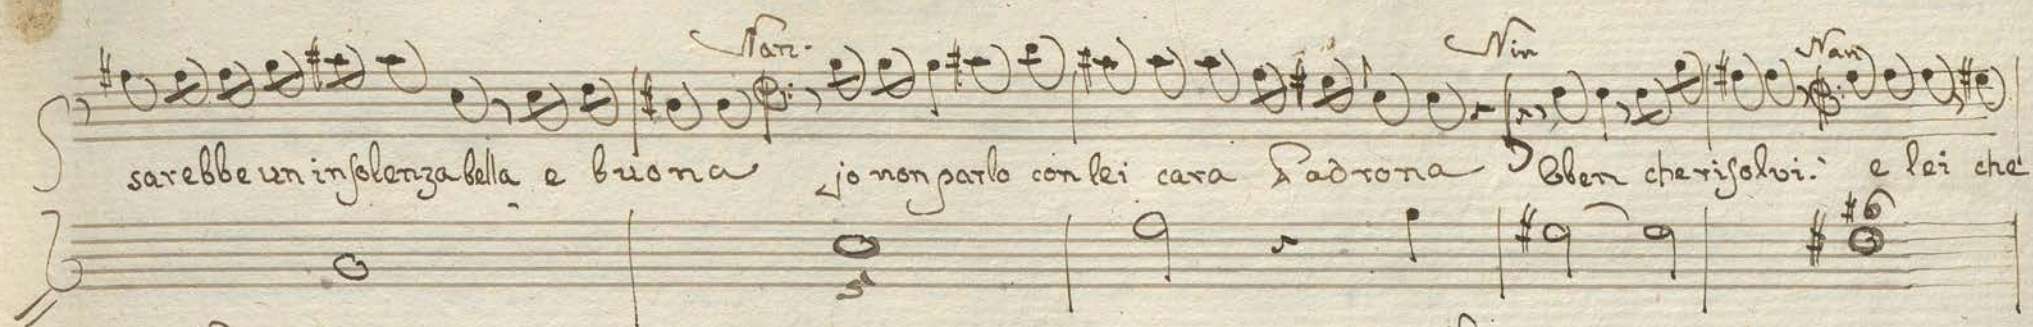 Nan. Nin Nan
sarebbe un insolenza bella e buona jo non parlo con lei cara Padrona Eben che risolvi: e lei che
#6
5